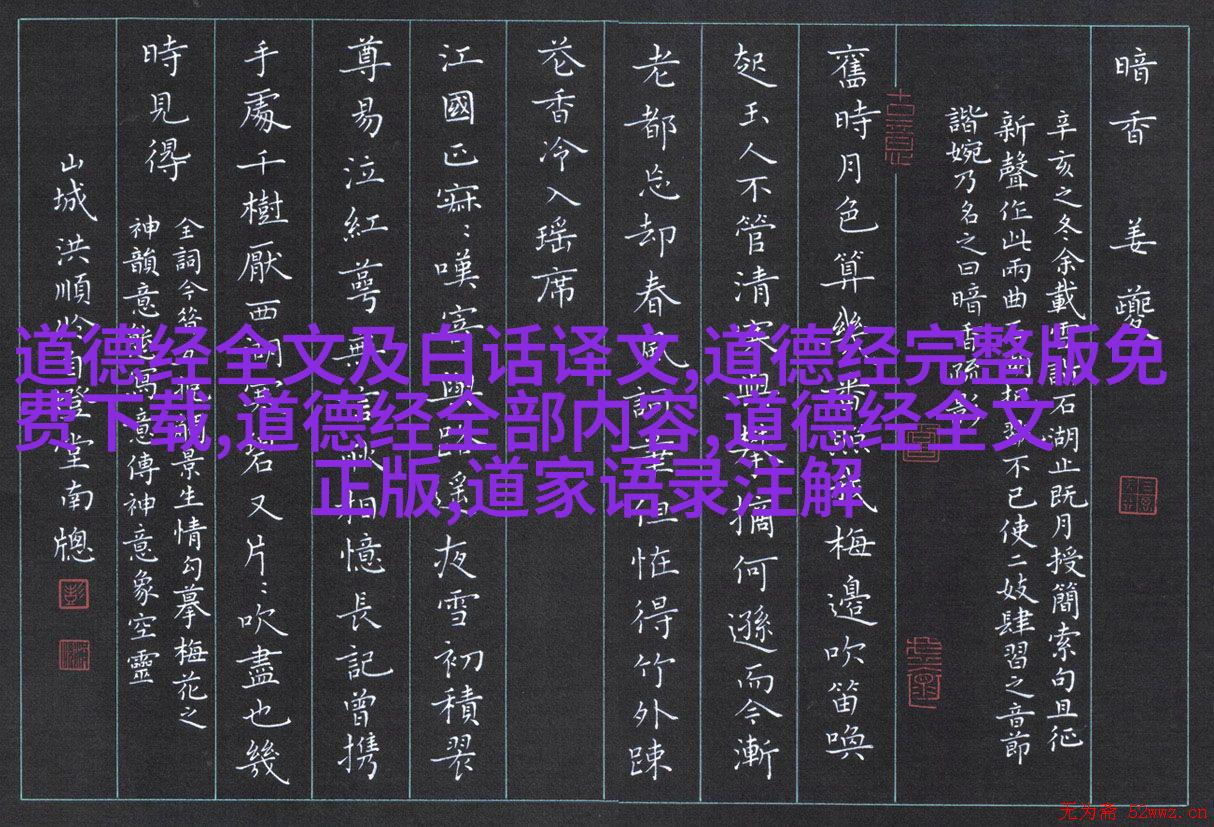 暗香 姜夔
辛亥之冬余載雪詣石湖止既月授簡索句且征
新聲作此兩曲石湖把不已使二妓肆習之音節
諧婉乃名之曰暗香疏影
舊時月色算幾番照我梅邊吹笛喚
起玉人不管清寒與攀摘何遜而今漸
老都忘却春風詞筆但恠得竹外踈
花香冷入瑶席
江國正寂：嘆寄與路遥夜雪初積翠
尊易泣紅萼無言耿相憶長記曾携
手處千樹厭西湖寒又片：吹盡也幾
時見得
全詞今昔景生情勾摹梅花之
神韻意態寫意傳神意象空靈
山城洪順自登堂南牕
道德经全文及白话译文,道德经完整版免
费下载,道德经全部内容,道德经全文
正版,道家语录注解
无为斋 52wwz.cn